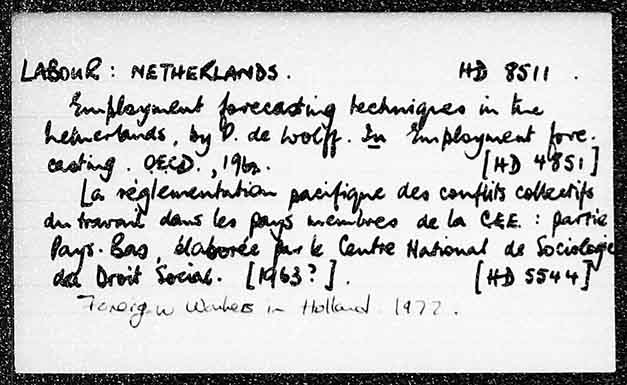 LABOUR : NETHERLANDS. HD 8511 .
Employment forecasting techniques in the
Netherlands, by P. de Wolff. In Employment fore-
casting. OECD., 196 . [HD 4851]
La réglementation pacifique des conflits collectifs
du travail dans les pays membres de la C.E.E. : partie
Pays-Bas, élaborée par le Centre National de Sociologie
du Droit Social. [1963?]. [HD 5544]
Foreign Workers in Holland. 1977.